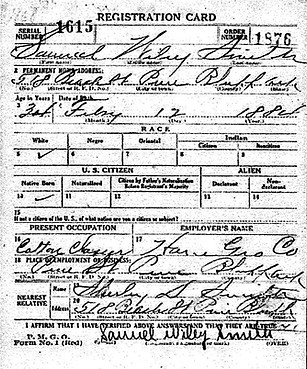 REGISTRATION CARD
SERIAL NUMBER 1615 ORDER NUMBER 1876
Samuel Wiley Smith
(First name) (Middle name) (Last name)
2 PERMANENT HOME ADDRESS:
Pine Bluff Ark
(No.) (Street or R. F. D. No.) (City or town) (County) (State)
Age in Years Date of Birth
3 34 Feby 12 1884
(Month) (Day) (Year)
RACE
White Negro Oriental Indian
Citizen Noncitizen
5 ✓ 6 7 8 9
U. S. CITIZEN ALIEN
Native Born Naturalized Citizen by Father's Naturalization Before Registrant's Majority Declarant Non-declarant
10 ✓ 11 12 13 14
15
If not a citizen of the U. S., of what nation are you a citizen or subject?
PRESENT OCCUPATION EMPLOYER'S NAME
16 Cotton 17 Co
18 PLACE OF EMPLOYMENT OR BUSINESS:
Pine Bluff Ark
(No.) (Street or R. F. D. No.) (City or town) (County) (State)
NEAREST RELATIVE Name 19
Address 20 Pine Bluff
(No.) (Street or R. F. D. No.) (City or town) (County) (State)
I AFFIRM THAT I HAVE VERIFIED ABOVE ANSWERS AND THAT THEY ARE TRUE
P. M. G. O.
Form No. 1 (Red) Samuel Wiley Smith